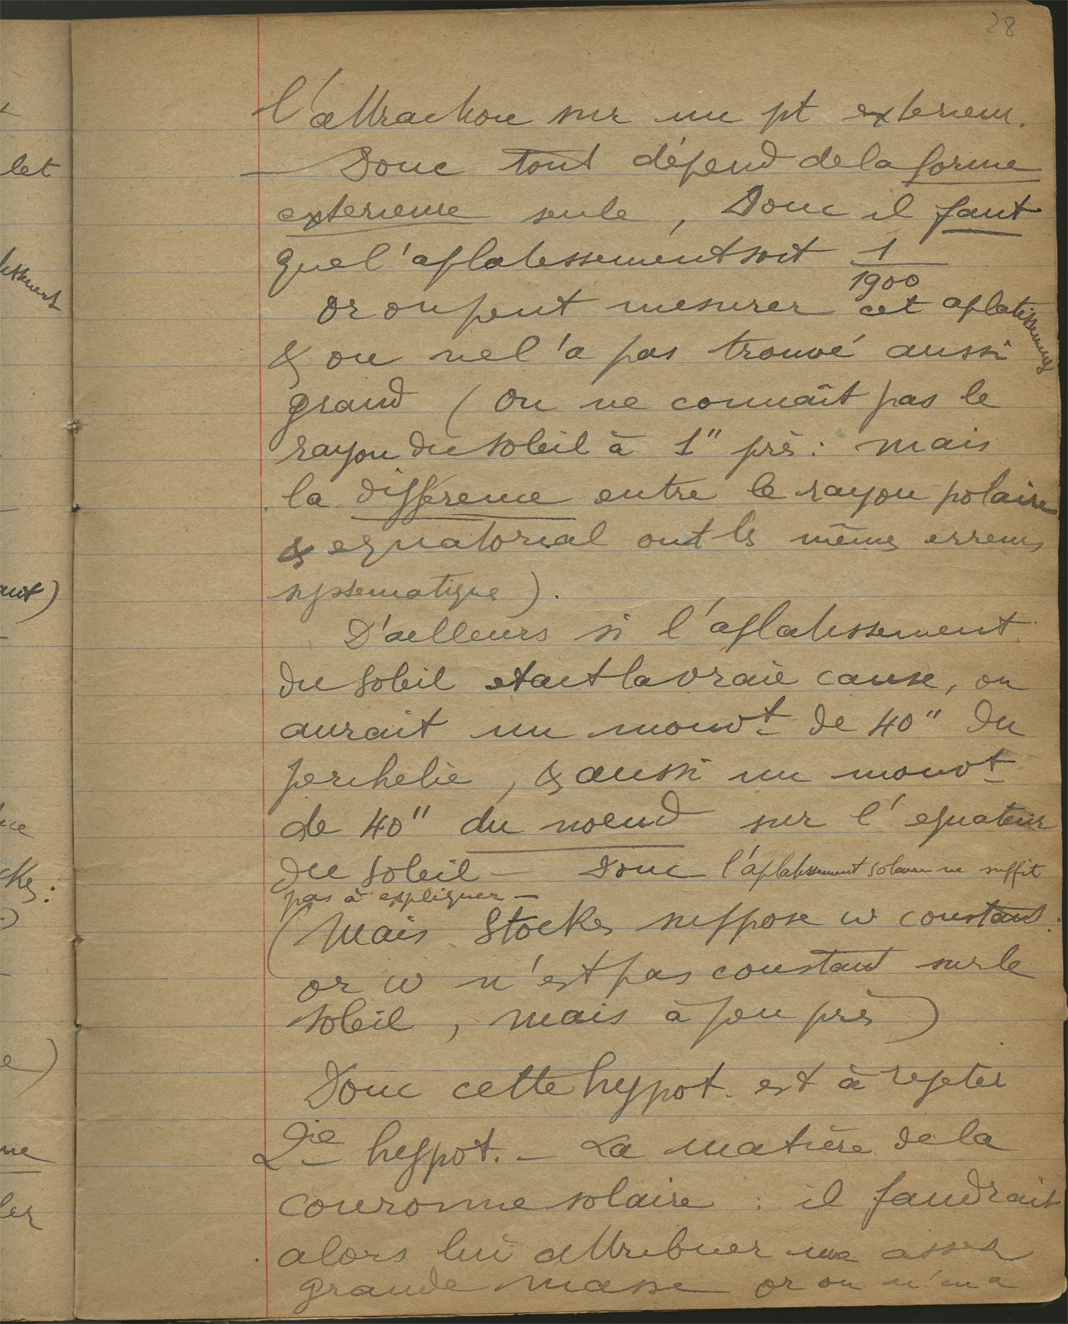 28
l'attraction sur un pt exterieur.
— Donc tout dépend de la forme
exterieure seule, Donc il faut
que l'aplatissement soit 1/1900
or on peut mesurer cet aplatissement
& on ne l'a pas trouvé aussi
grand (on ne connaît pas le
rayon du soleil à 1" près: mais
la différence entre le rayon polaire
& equatorial ont ls mêmes erreurs
systematique).
D'ailleurs si l'aplatissement
du soleil etait la vraie cause, on
aurait un mouvt de 40" du
perihelie, & aussi un mouvt
de 40" du noeud sur l'equateur
du soleil — Donc l'aplatissement solaire ne suffit
pas à expliquer —
(Mais Stockes suppose w constant.
or w n'est pas constant sur le
soleil, mais à peu près)
Donc cette hypot. est à rejeter
2ie hypot. — La matière de la
couronne solaire : il faudrait
alors lui attribuer une assez
grande masse or on n'en a
let
ant)